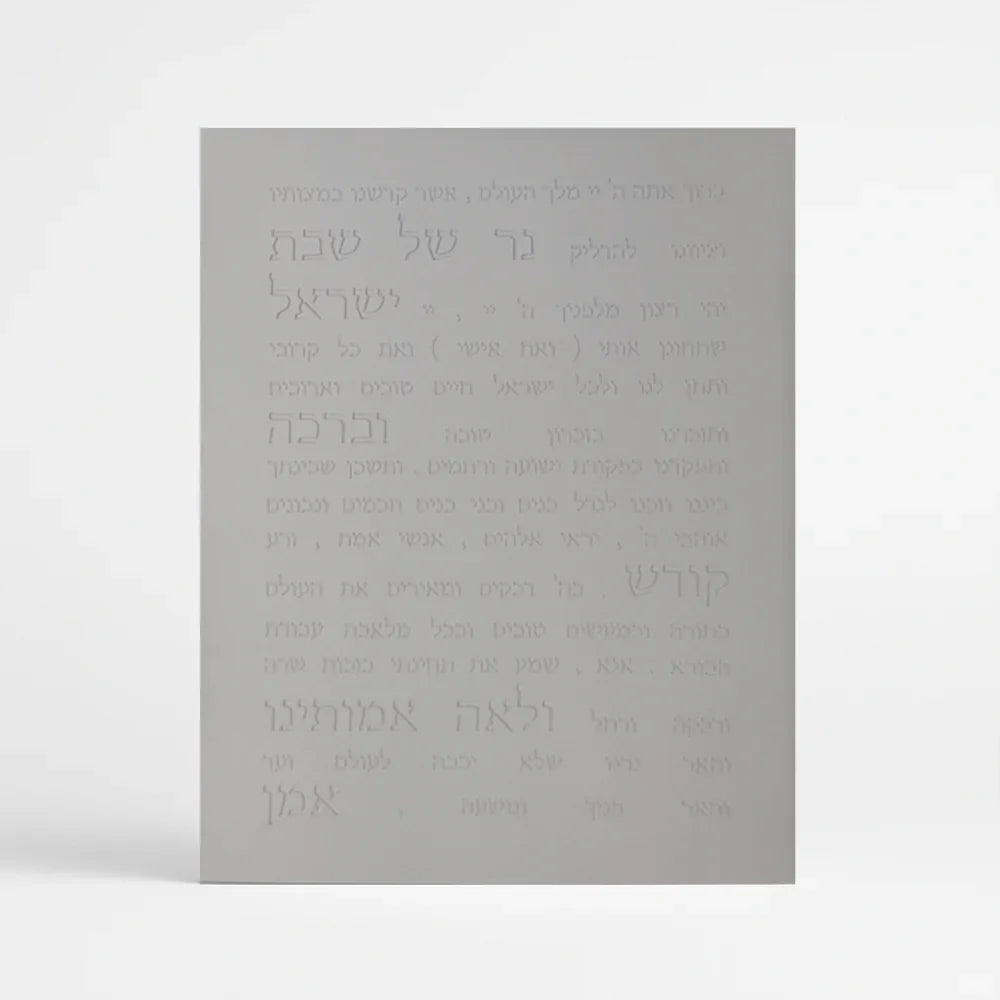 ברוך אתה ה' יי מלך העולם , אשר קדשנו במצותיו
וציוונו להדליק נר של שבת
יהי רצון מלפניך ה' יי , יי ישראל
שתחונן אותי ( ואת אישי ) ואת כל קרובי
ותתן לנו ולכל ישראל חיים טובים וארוכים
ותזכרינו בזכרון טובה וברכה
ותפקדנו בפקודת ישועה ורחמים . ותשכן שכינתך
ביננו וזכנו לגדל בנים ובני בנים חכמים ונבונים
אוהבי ה' , יראי אלהים , אנשי אמת , זרע
קודש . בה' דבקים ומאירים את העולם
בתורה ובמעשים טובים ובכל מלאכת עבודת
הבורא . אנא , שמע את תחינתי בזכות שרה
ורבקה ורחל ולאה אמותינו
והאר נרינו שלא יכבה לעולם ועד
והאר פניך ונושעה , אמן